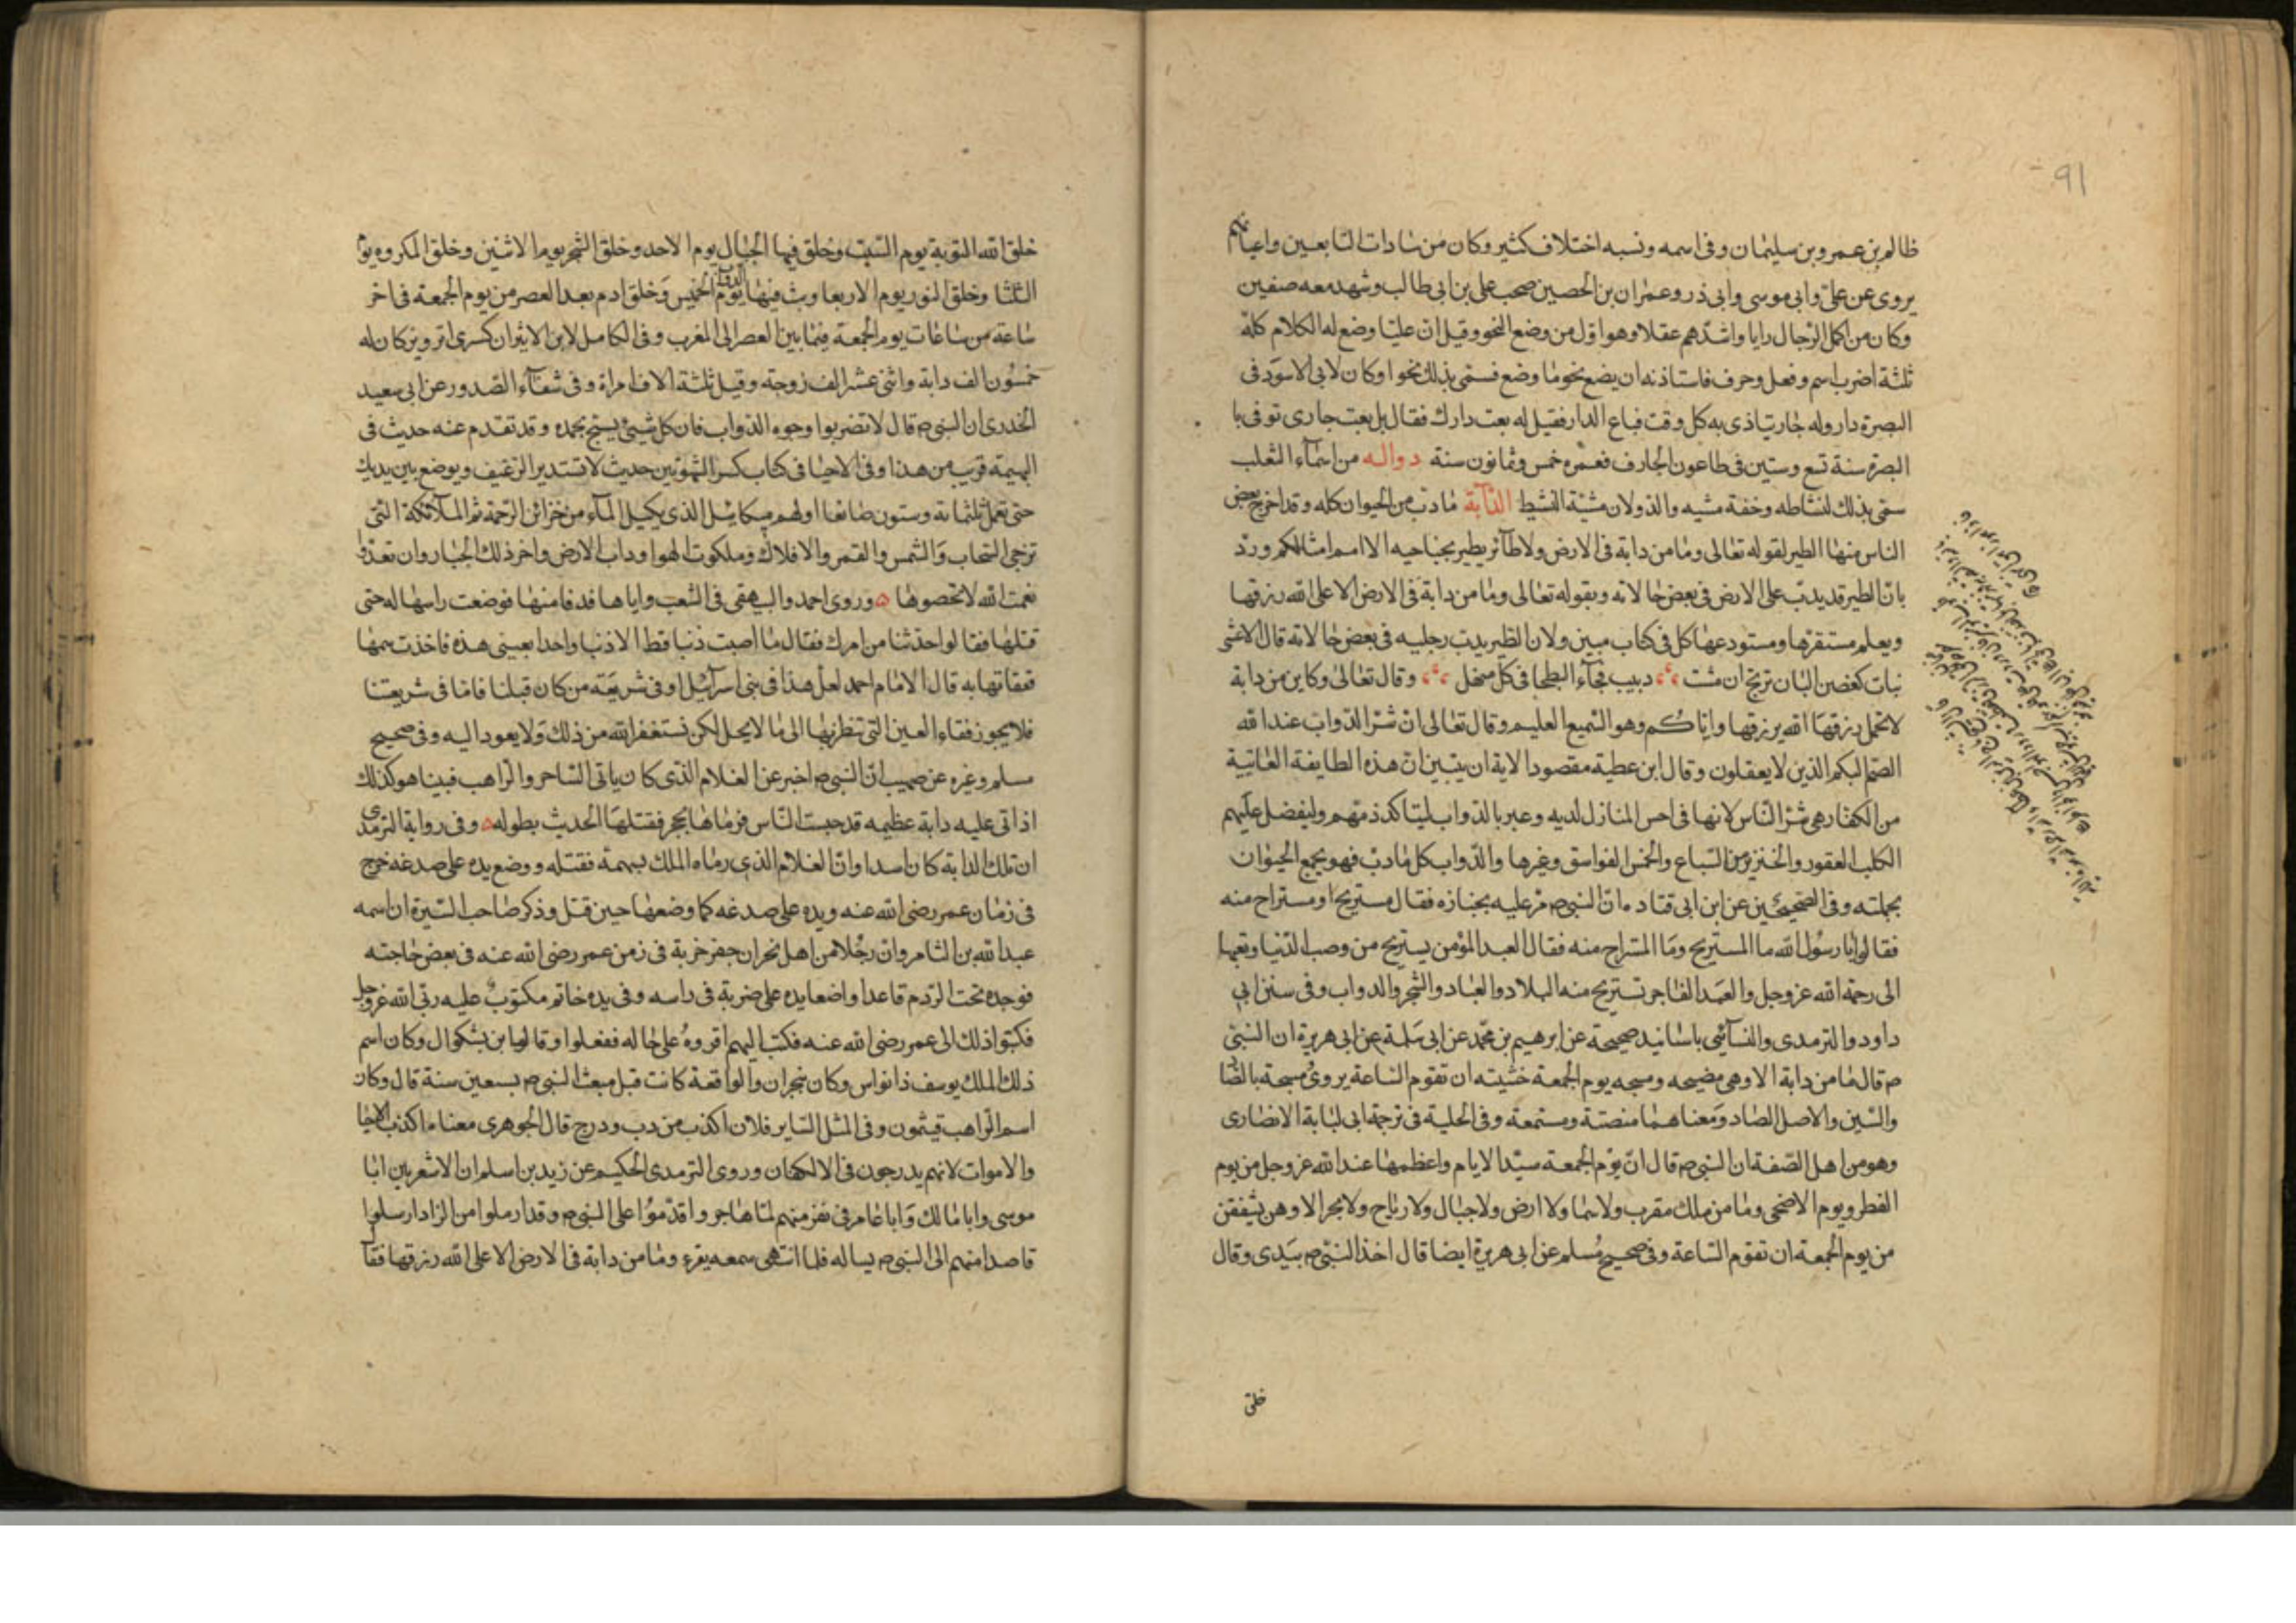 91
ظالم بن عمرو بن سليمان وفى اسمه ونسبه اختلاف كثير وكان من سادات التابعين واعيانهم
يروى عن علىّ وابى موسى وابى ذر وعمران بن الحصين صحب على بن ابى طالب وشهد معه صفين
وكان من اكمل الرجال رايا واشدّهم عقلا وهو اوّل من وضع النحو وقيل انّ عليّا وضع له الكلام كلّه
ثلثة اضرب اسم وفعل وحرف فاستاذنه ان يضع نحو ما وضع فسمى بذلك نحوا وكان لابى الاسود فى
البصرة دار وله جار يتاذى به كل وقت فباع الدار فقيل له بعت دارك فقال بل بعت جارى توفى با
البصرة سنة تسع وستين فى طاعون الجارف فعمره خمس وثمانون سنة دواله من اسماء الثعلب
سمّى بذلك لنشاطه وخفة مشيه والذولان مشيّة النشيط الدّآبة ما دبّ من الحيوان كله وقد اخرج بعض
الناس منها الطير لقوله تعالى وما من دابة فى الارض ولا طآئر يطير بجناحيه الا امم امثالكم وردّ
بانّ الطير قد يدبّ على الارض فى بعض حالاته وبقوله تعالى وما من دابة فى الارض الا على الله رزقها
ويعلم مستقرها ومستودعها كل فى كتاب مبين ولان الطير يدب رجليه فى بعض حالاته قال الاعشى
نبات كغصن البان ترتج ان مشت دبيب قطا البطحا فى كل منهل وقال تعالى وكاين من دابة
لا تحمل رزقها الله يرزقها واياكم وهو السّميع العليم وقال تعالى انّ شرّ الدّوابّ عند الله
الصّم البكم الذين لا يعقلون وقال ابن عطية مقصود الاية ان يتبين انّ هذه الطايفة العاتية
من الكفار هى شرّ النّاس لانها فى اخس المنازل لديه وعبر بالدّواب ليتاكد ذمّهم وليفضل عليهم
الكلب العقور والخنزير من السّباع والخمس الفواسق وغيرها والدّواب كل ما دبّ فهو يجمع الحيوان
بجملته وفى الصّحيحين عن ابن ابى قتاده انّ النبى ص مرّ عليه بجنازه فقال مستريح او مستراح منه
فقالوا يا رسول الله ما المستريح وما المستراح منه فقال العبد المؤمن يستريح من وصب الدّنيا وتعبها
الى رحمة الله عز وجل والعبد الفاجر تستريح منه البلاد والعباد والشّجر والدواب وفى سنن ابى
داود والترمدى والنسآئى باسانيد صحيحة عن ابرهيم بن محمّد عن ابى سلمة عن ابى هريرة ان النبىّ
ص قال ما من دابة الا وهى مصيحه ومسيحه يوم الجمعة خشيته ان تقوم السّاعة يروى مسيحة بالصّاد
والسّين والاصل الصّاد ومعناهما منصتة ومستمعة وفى الحلية فى ترجمة ابى لبابة الانصارى
وهو من اهل الصّفة ان النبى ص قال انّ يوم الجمعة سيّد الايام واعظمها عند الله عز وجل من يوم
الفطر ويوم الاضحى وما من ملك مقرب ولا سما ولا ارض ولا جبال ولا رياح ولا بحر الا وهن يشفقن
من يوم الجمعة ان تقوم السّاعة وفى صحيح مسلم عن ابى هريرة ايضا قال اخذ النبىّ ص بيدى وقال
خلق
خلق الله التوبة يوم السّبت وخلق فيها الجبال يوم الاحد وخلق الشّجر يوم الاثنين وخلق المكروه يوم
الثلثا وخلق النور يوم الاربعا وبث فيها الدوابّ يوم الخميس وخلق ادم بعد العصر من يوم الجمعة فى اخر
ساعة من ساعات يوم الجمعة فيما بين العصر الى المغرب وفى الكامل لابن الاثير ان كسرى ابرويز كان له
خمسون الف دابة واثنى عشر الف زوجة وقيل ثلثة الاف امراة وفى شفآء الصّدور عن ابى سعيد
الخدرى ان النبى ص قال لا تضربوا وجوه الدّواب فان كل شيئ يسبّح بحمده وقد تقدم عنه حديث فى
البهيمة قريب من هذا وفى الاحيا فى كتاب كسر الشّهوتين حديث لا تستدير الرّغيف ويوضع بين يديك
حتى تعمل ثلثمائة وستون صانعا اولهم ميكائيل الذى يكيل المآء من خزائن الرّحمة ثم الملآئكة التى
تزجى السّحاب والشّمس والقمر والافلاك وملكوت الهوا ودابّ الارض واخر ذلك الخبّاز وان تعدّوا
نعمت الله لا تحصوها ه وروى احمد والبيهقى فى الشّعب واياها فدفا منها فوضعت راسها له حتى
قتلها فقالوا حدّثنا من امرك فقال ما اصبت ذنبا قط الا ذنبا واحدا بعينى هذه فاخذت سهما
ففقاتها به قال الامام احمد لعلّ هذا فى بنى اسرآئيل او فى شريعة من كان قبلنا فامّا فى شريعتنا
فلا يجوز فقاء العين التى تنظر بها الى ما لا يحل لكن نستغفر الله من ذلك ولا يعود اليه وفى صحيح
مسلم وغيره عن صهيب انّ النبى ص اخبر عن الغلام الذى كان ياتى السّاحر والرّاهب فبينا هو كذلك
اذ اتى عليه دابة عظيمه قد حبست النّاس فرماها بحجر فقتلها الحديث بطوله ه وفى رواية الترمدى
ان تلك الدابة كان اسدا وانّ الغلام الذى رماه الملك بسهمه فقتله ووضع يده على صدغه خرج
فى زمان عمر رضى الله عنه ويده على صدغه كما وضعها حين قتل وذكر صاحب السّيرة ان اسمه
عبد الله بن الثامر وانّ رجلا من اهل نجران حفر خربة فى زمن عمر رضى الله عنه فى بعض حاجته
فوجده تحت الرّدم قاعدا واضعا يده على ضربة فى راسه وفى يده خاتم مكتوب عليه ربّى الله عز وجل
فكتبوا ذلك الى عمر رضى الله عنه فكتب اليهم اقروه على حاله ففعلوا وقالها بن بشكوال وكان اسم
ذلك الملك يوسف ذا نواس وكان بنجران والواقعة كانت قبل مبعث النبى ص بسبعين سنة قال وكان
اسم الرّاهب قيثمون وفى المثل السّاير فلان اكذب من دب ودرج قال الجوهرى معناه اكذب الاحيا
والاموات لانهم يدرجون فى الاكفان وروى الترمدى الحكيم عن زيد بن اسلم ان الاشعريين ابا
موسى وابا مالك وابا عامر فى نفر منهم لمّا هاجروا قدموا على النبى ص وقد ارملوا من الزاد ارسلوا
قاصدا منهم الى النبى ص يساله فلما انتهى سمعه يقرء وما من دابة فى الارض الا على الله رزقها فقا